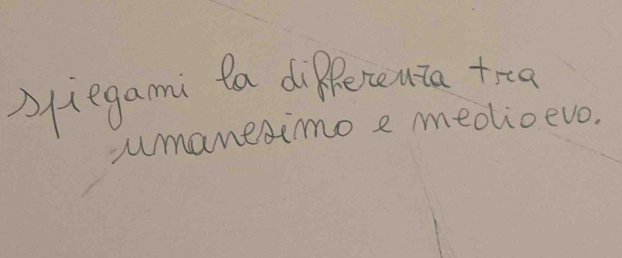 spiegami la differenza tra
umanesimo e medioevo.